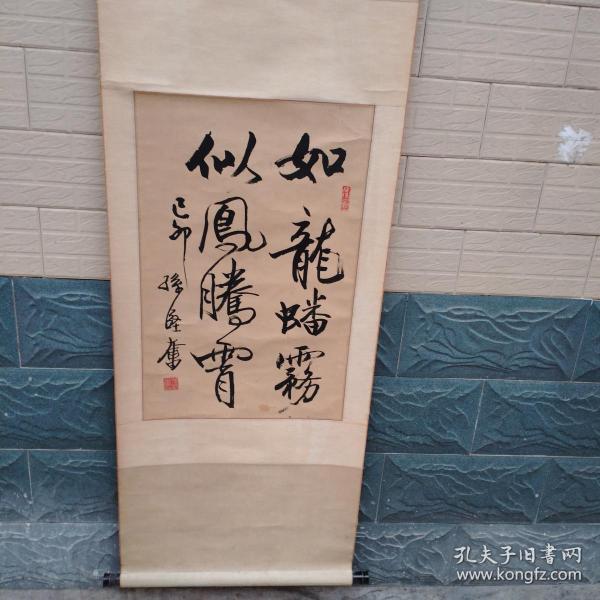 如龍蟠霧
似鳳騰霄
己卯 孫堅奮
孔夫子旧书网
www.kongfz.com